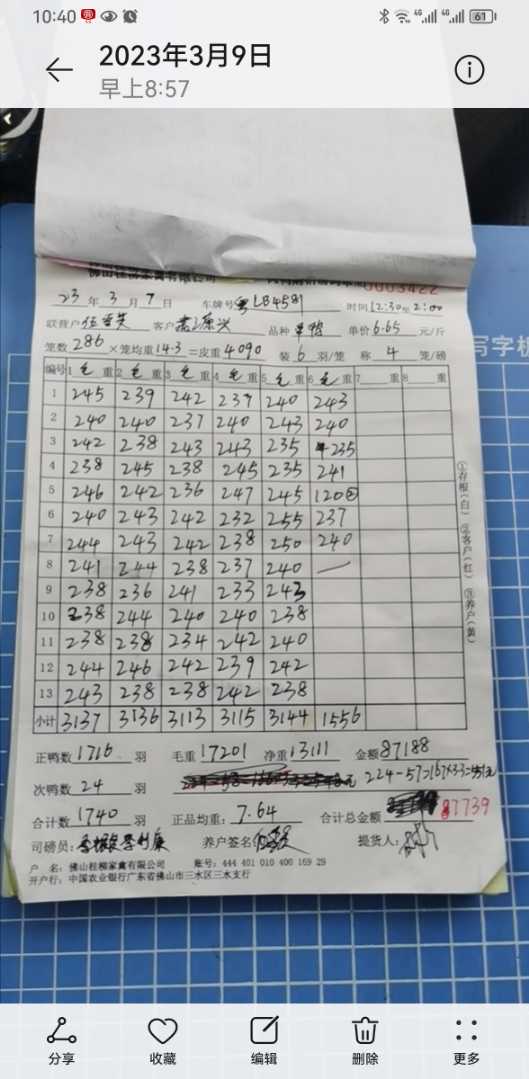 10:40 61
2023年3月9日
早上8:57
佛山桂柳家禽有限公司
0003422
23 年 3 月 7 日 车牌号 粤LB4581 时间 12:30至2:00
联营户 客户 品种 单价 6.65 元/斤
笼数 286 ×笼均重 14.3 =皮重 4090 装 6 羽/笼 称 4 笼/磅
编号 1 毛 重 2 毛 重 3 毛 重 4 毛 重 5 毛 重 6 毛 重 7 重 8 重
1 245 239 242 237 240 243
2 240 240 237 240 243 240
3 242 238 243 243 235 235
4 238 245 238 245 235 241
5 246 242 236 247 245 120②
6 240 243 242 232 255 237
7 244 243 242 238 250 240
8 241 244 238 237 240
9 238 236 241 233 243
10 238 244 240 240 238
11 238 238 234 242 240
12 244 246 242 239 242
13 243 238 238 242 238
小计 3137 3136 3113 3115 3144 1556
①存根(白) ②客户(红) ③养户(黄)
写字机
正鸭数 1716 羽 毛重 17201 净重 13111 金额 87188
次鸭数 24 羽 224-57=167×3.3=551元
合计数 1740 羽 正品均重: 7.64 合计总金额 87739
司磅员: 养户签名 提货人:
户 名: 佛山桂柳家禽有限公司 账号: 444 401 010 400 169 29
开户行: 中国农业银行广东省佛山市三水区三水支行
分享 收藏 编辑 删除 更多